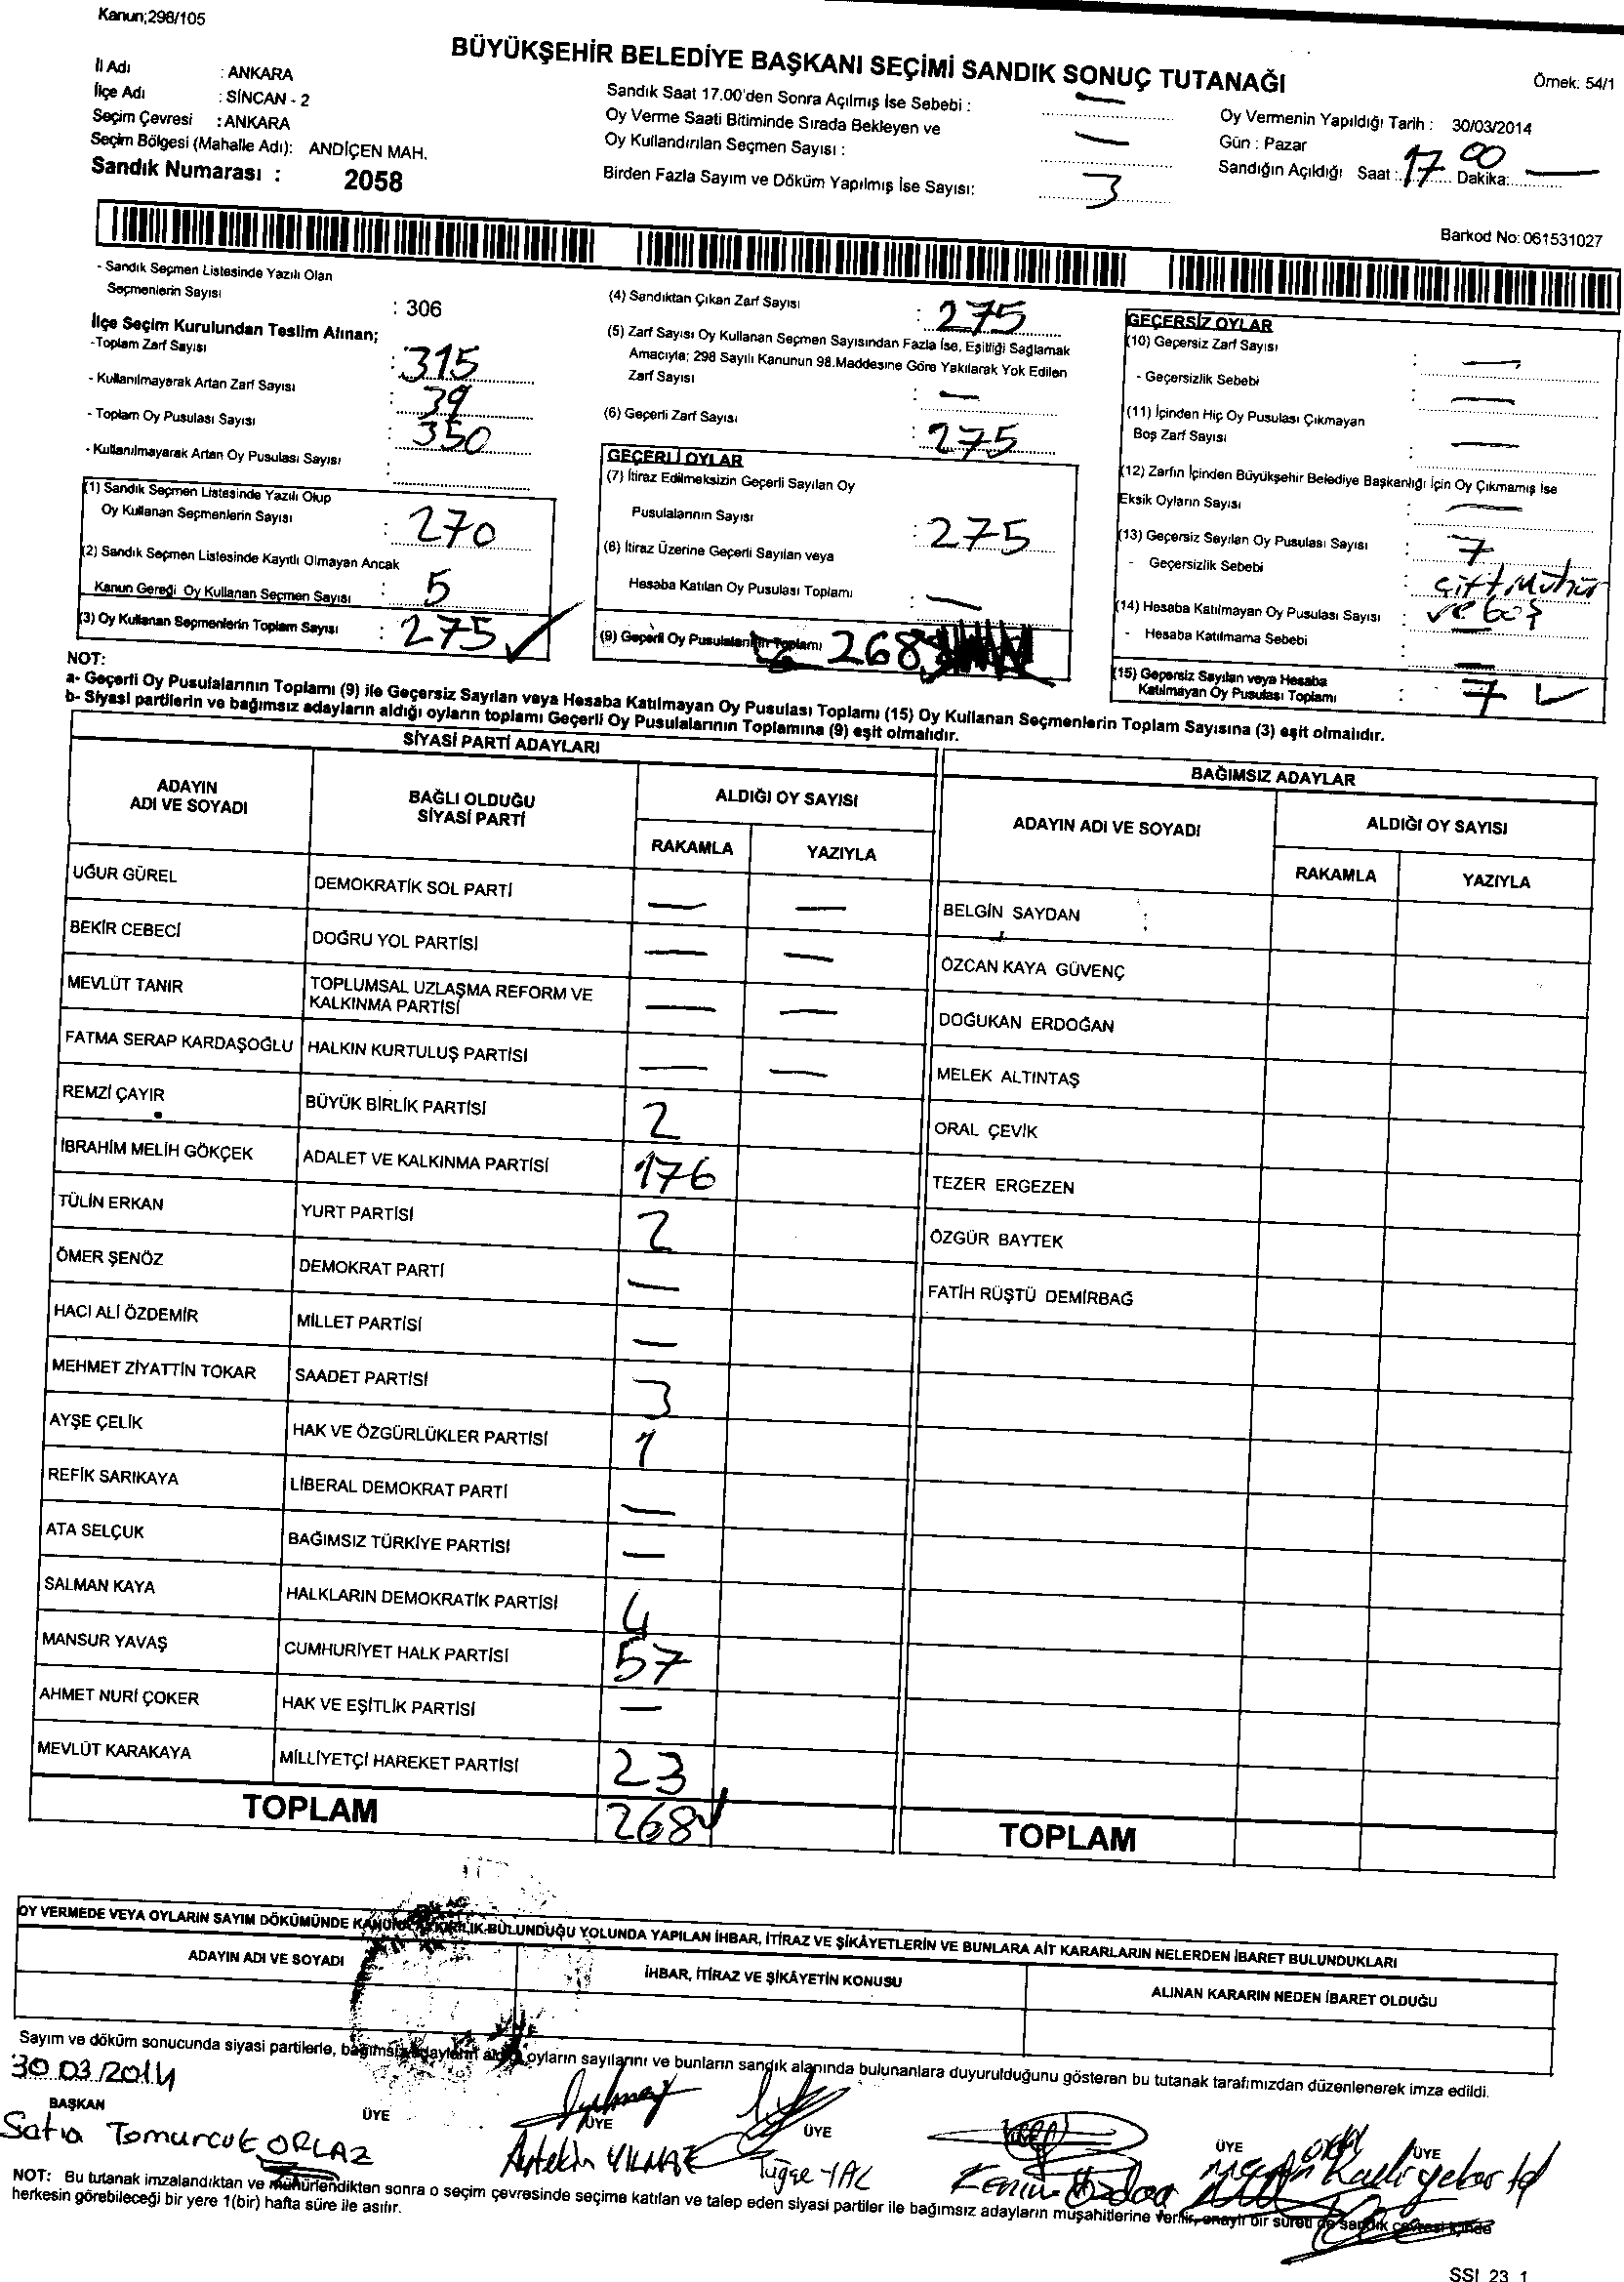 Kanun;298/105
BÜYÜKŞEHİR BELEDİYE BAŞKANI SEÇİMİ SANDIK SONUÇ TUTANAĞI
Örnek: 54/1
İl Adı : ANKARA
İlçe Adı : SİNCAN - 2
Seçim Çevresi : ANKARA
Seçim Bölgesi (Mahalle Adı): ANDİÇEN MAH.
Sandık Numarası : 2058
Sandık Saat 17.00'den Sonra Açılmış İse Sebebi : —
Oy Verme Saati Bitiminde Sırada Bekleyen ve
Oy Kullandırılan Seçmen Sayısı : —
Birden Fazla Sayım ve Döküm Yapılmış İse Sayısı: 3
Oy Vermenin Yapıldığı Tarih : 30/03/2014
Gün : Pazar
Sandığın Açıldığı Saat : 17 00 Dakika: —
Barkod No: 061531027
- Sandık Seçmen Listesinde Yazılı Olan
Seçmenlerin Sayısı : 306
İlçe Seçim Kurulundan Teslim Alınan;
-Toplam Zarf Sayısı : 315
- Kullanılmayarak Artan Zarf Sayısı : 39
- Toplam Oy Pusulası Sayısı : 350
- Kullanılmayarak Artan Oy Pusulası Sayısı :
(1) Sandık Seçmen Listesinde Yazılı Olup
Oy Kullanan Seçmenlerin Sayısı : 270
(2) Sandık Seçmen Listesinde Kayıtlı Olmayan Ancak
Kanun Gereği Oy Kullanan Seçmen Sayısı : 5
(3) Oy Kullanan Seçmenlerin Toplam Sayısı : 275 ✓
(4) Sandıktan Çıkan Zarf Sayısı : 275
(5) Zarf Sayısı Oy Kullanan Seçmen Sayısından Fazla İse, Eşitliği Sağlamak
Amacıyla; 298 Sayılı Kanunun 98.Maddesine Göre Yakılarak Yok Edilen
Zarf Sayısı : —
(6) Geçerli Zarf Sayısı : 275
GEÇERLİ OYLAR
(7) İtiraz Edilmeksizin Geçerli Sayılan Oy
Pusulalarının Sayısı : 275
(8) İtiraz Üzerine Geçerli Sayılan veya
Hesaba Katılan Oy Pusulası Toplamı : —
(9) Geçerli Oy Pusulalarının Toplamı 268
GEÇERSİZ OYLAR
(10) Geçersiz Zarf Sayısı : —
- Geçersizlik Sebebi : —
(11) İçinden Hiç Oy Pusulası Çıkmayan
Boş Zarf Sayısı : —
(12) Zarfın İçinden Büyükşehir Belediye Başkanlığı İçin Oy Çıkmamış İse
Eksik Oyların Sayısı : —
(13) Geçersiz Sayılan Oy Pusulası Sayısı : 7
- Geçersizlik Sebebi : Çift Mühür
ve boş
(14) Hesaba Katılmayan Oy Pusulası Sayısı : —
- Hesaba Katılmama Sebebi : —
(15) Geçersiz Sayılan veya Hesaba
Katılmayan Oy Pusulası Toplamı : 7 ✓
NOT:
a- Geçerli Oy Pusulalarının Toplamı (9) ile Geçersiz Sayılan veya Hesaba Katılmayan Oy Pusulası Toplamı (15) Oy Kullanan Seçmenlerin Toplam Sayısına (3) eşit olmalıdır.
b- Siyasi partilerin ve bağımsız adayların aldığı oyların toplamı Geçerli Oy Pusulalarının Toplamına (9) eşit olmalıdır.
SİYASİ PARTİ ADAYLARI
ADAYIN ADI VE SOYADI BAĞLI OLDUĞU SİYASİ PARTİ ALDIĞI OY SAYISI
RAKAMLA YAZIYLA
UĞUR GÜREL DEMOKRATİK SOL PARTİ — —
BEKİR CEBECİ DOĞRU YOL PARTİSİ — —
MEVLÜT TANIR TOPLUMSAL UZLAŞMA REFORM VE KALKINMA PARTİSİ — —
FATMA SERAP KARDAŞOĞLU HALKIN KURTULUŞ PARTİSİ — —
REMZİ ÇAYIR BÜYÜK BİRLİK PARTİSİ 2
İBRAHİM MELİH GÖKÇEK ADALET VE KALKINMA PARTİSİ 176
TÜLİN ERKAN YURT PARTİSİ 2
ÖMER ŞENÖZ DEMOKRAT PARTİ —
HACI ALİ ÖZDEMİR MİLLET PARTİSİ —
MEHMET ZİYATTİN TOKAR SAADET PARTİSİ 3
AYŞE ÇELİK HAK VE ÖZGÜRLÜKLER PARTİSİ 1
REFİK SARIKAYA LİBERAL DEMOKRAT PARTİ —
ATA SELÇUK BAĞIMSIZ TÜRKİYE PARTİSİ —
SALMAN KAYA HALKLARIN DEMOKRATİK PARTİSİ 4
MANSUR YAVAŞ CUMHURİYET HALK PARTİSİ 57
AHMET NURİ ÇOKER HAK VE EŞİTLİK PARTİSİ —
MEVLÜT KARAKAYA MİLLİYETÇİ HAREKET PARTİSİ 23
TOPLAM 268 ✓
BAĞIMSIZ ADAYLAR
ADAYIN ADI VE SOYADI ALDIĞI OY SAYISI
RAKAMLA YAZIYLA
BELGİN SAYDAN
ÖZCAN KAYA GÜVENÇ
DOĞUKAN ERDOĞAN
MELEK ALTINTAŞ
ORAL ÇEVİK
TEZER ERGEZEN
ÖZGÜR BAYTEK
FATİH RÜŞTÜ DEMİRBAĞ
TOPLAM
OY VERMEDE VEYA OYLARIN SAYIM DÖKÜMÜNDE KANUNA AYKIRILIK BULUNDUĞU YOLUNDA YAPILAN İHBAR, İTİRAZ VE ŞİKÂYETLERİN VE BUNLARA AİT KARARLARIN NELERDEN İBARET BULUNDUKLARI
ADAYIN ADI VE SOYADI İHBAR, İTİRAZ VE ŞİKÂYETİN KONUSU ALINAN KARARIN NEDEN İBARET OLDUĞU
Sayım ve döküm sonucunda siyasi partilerle, bağımsız adayların aldığı oyların sayılarını ve bunların sandık alanında bulunanlara duyurulduğunu gösteren bu tutanak tarafımızdan düzenlenerek imza edildi.
30.03/2014
BAŞKAN ÜYE ÜYE ÜYE ÜYE ÜYE
Satıa Tomurcuk ORLAZ Aytekin YILMAZ Tuğçe
NOT: Bu tutanak imzalandıktan ve mühürlendikten sonra o seçim çevresinde seçime katılan ve talep eden siyasi partiler ile bağımsız adayların müşahitlerine verilir, onaylı bir sureti de sandık çevresi içinde
herkesin görebileceği bir yere 1(bir) hafta süre ile asılır.
SSI 23 1